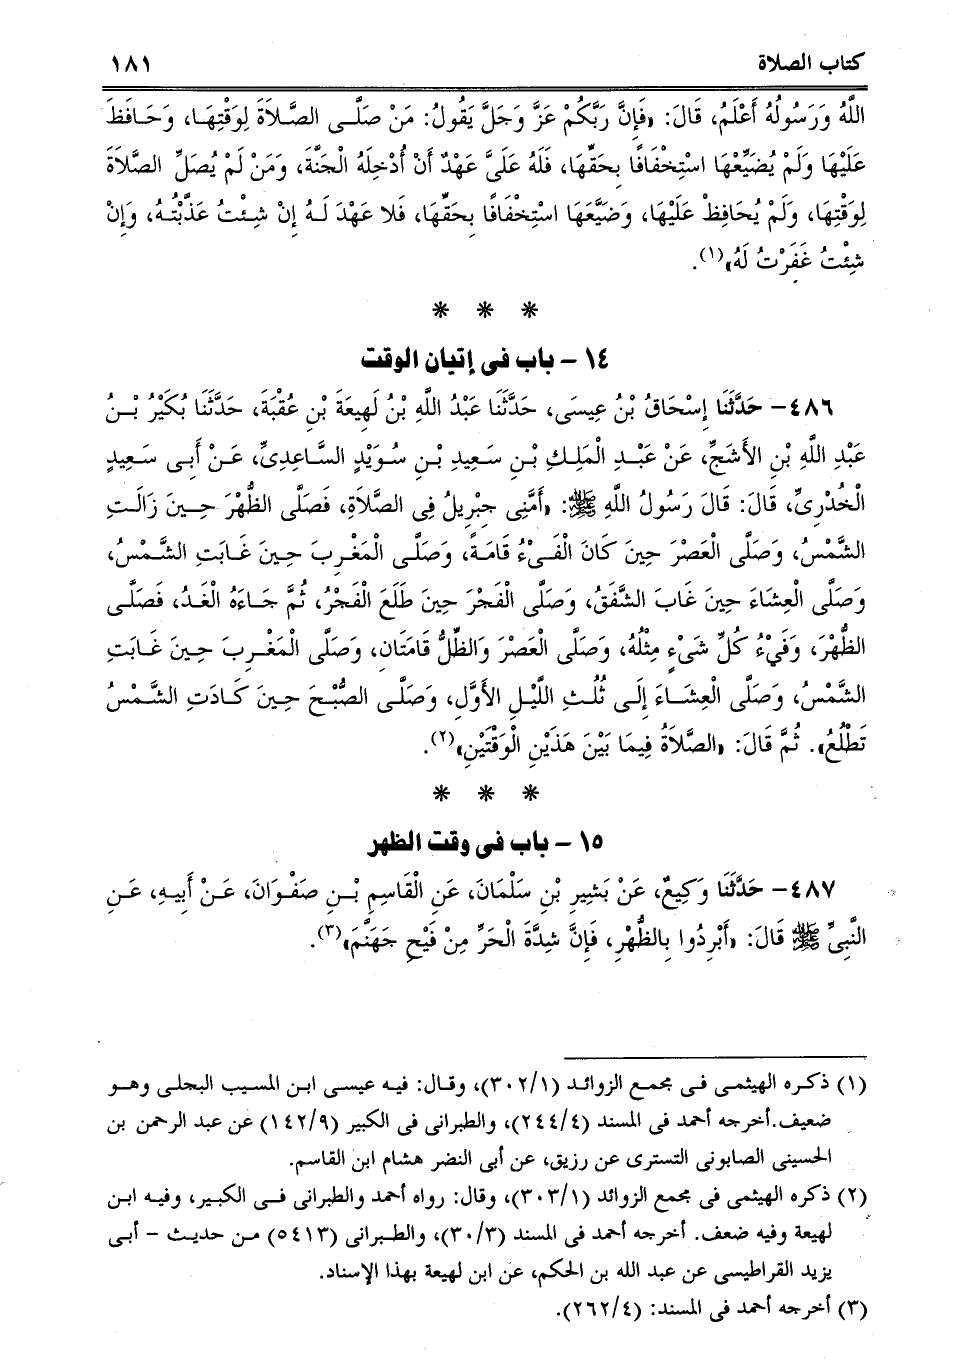 كتاب الصلاة ١٨١
اللَّهُ وَرَسُولُهُ أَعْلَمُ، قَالَ: «فَإِنَّ رَبَّكُمْ عَزَّ وَجَلَّ يَقُولُ: مَنْ صَلَّى الصَّلَاةَ لِوَقْتِهَا، وَحَافَظَ
عَلَيْهَا وَلَمْ يُضَيِّعْهَا اسْتِخْفَافًا بِحَقِّهَا، فَلَهُ عَلَيَّ عَهْدٌ أَنْ أُدْخِلَهُ الْجَنَّةَ، وَمَنْ لَمْ يُصَلِّ الصَّلَاةَ
لِوَقْتِهَا، وَلَمْ يُحَافِظْ عَلَيْهَا، وَضَيَّعَهَا اسْتِخْفَافًا بِحَقِّهَا، فَلَا عَهْدَ لَهُ إِنْ شِئْتُ عَذَّبْتُهُ، وَإِنْ
شِئْتُ غَفَرْتُ لَهُ»(١).
* * *
١٤ – باب فى إتيان الوقت
٤٨٦– حَدَّثَنَا إِسْحَاقُ بْنُ عِيسَى، حَدَّثَنَا عَبْدُ اللَّهِ بْنُ لَهِيعَةَ بْنِ عُقْبَةَ، حَدَّثَنَا بُكَيْرُ بْنُ
عَبْدِ اللَّهِ بْنِ الأَشَجِّ، عَنْ عَبْدِ الْمَلِكِ بْنِ سَعِيدِ بْنِ سُوَيْدٍ السَّاعِدِىِّ، عَنْ أَبِى سَعِيدٍ
الْخُدْرِىِّ، قَالَ: قَالَ رَسُولُ اللَّهِ ﷺ: «أَمَّنِى جِبْرِيلُ فِى الصَّلَاةِ، فَصَلَّى الظُّهْرَ حِينَ زَالَتِ
الشَّمْسُ، وَصَلَّى الْعَصْرَ حِينَ كَانَ الْفَىْءُ قَامَةً، وَصَلَّى الْمَغْرِبَ حِينَ غَابَتِ الشَّمْسُ،
وَصَلَّى الْعِشَاءَ حِينَ غَابَ الشَّفَقُ، وَصَلَّى الْفَجْرَ حِينَ طَلَعَ الْفَجْرُ، ثُمَّ جَاءَهُ الْغَدُ، فَصَلَّى
الظُّهْرَ، وَفَيْءُ كُلِّ شَىْءٍ مِثْلُهُ، وَصَلَّى الْعَصْرَ وَالظِّلُّ قَامَتَانِ، وَصَلَّى الْمَغْرِبَ حِينَ غَابَتِ
الشَّمْسُ، وَصَلَّى الْعِشَاءَ إِلَى ثُلُثِ اللَّيْلِ الأَوَّلِ، وَصَلَّى الصُّبْحَ حِينَ كَادَتِ الشَّمْسُ
تَطْلُعُ». ثُمَّ قَالَ: «الصَّلَاةُ فِيمَا بَيْنَ هَذَيْنِ الْوَقْتَيْنِ»(٢).
* * *
١٥ – باب فى وقت الظهر
٤٨٧– حَدَّثَنَا وَكِيعٌ، عَنْ بَشِيرِ بْنِ سَلْمَانَ، عَنِ الْقَاسِمِ بْنِ صَفْوَانَ، عَنْ أَبِيهِ، عَنِ
النَّبِىِّ ﷺ قَالَ: «أَبْرِدُوا بِالظُّهْرِ، فَإِنَّ شِدَّةَ الْحَرِّ مِنْ فَيْحِ جَهَنَّمَ»(٣).
(١) ذكره الهيثمى فى مجمع الزوائد (٣٠٢/١)، وقال: فيه عيسى ابن المسيب البجلى وهو
ضعيف.أخرجه أحمد فى المسند (٢٤٤/٤)، والطبرانى فى الكبير (١٤٢/٩) عن عبد الرحمن بن
الحسينى الصابونى التسترى عن رزيق، عن أبى النضر هشام ابن القاسم.
(٢) ذكره الهيثمى فى مجمع الزوائد (٣٠٣/١)، وقال: رواه أحمد والطبرانى فى الكبير، وفيه ابن
لهيعة وفيه ضعف. أخرجه أحمد فى المسند (٣٠/٣)، والطبرانى (٥٤١٣) من حديث – أبى
يزيد القراطيسى عن عبد الله بن الحكم، عن ابن لهيعة بهذا الإسناد.
(٣) أخرجه أحمد فى المسند: (٢٦٢/٤).